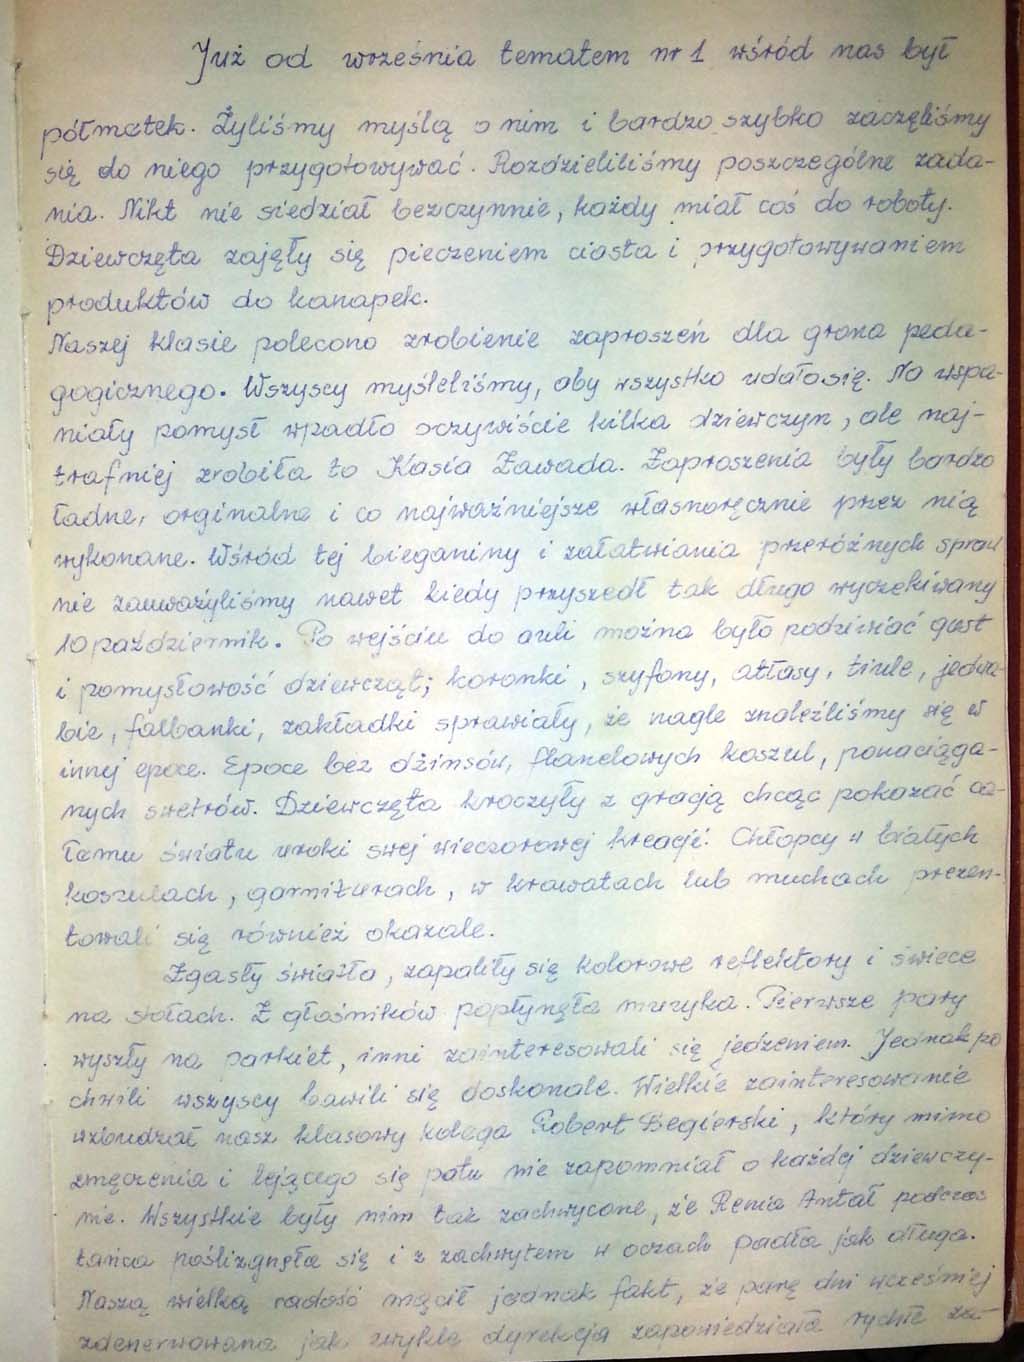 Już od września tematem nr 1 wśród nas był
półmetek. Żyliśmy myślą o nim i bardzo szybko zaczęliśmy
się do niego przygotowywać. Rozdzieliliśmy poszczególne zada-
nia. Nikt nie siedział bezczynnie, każdy miał coś do roboty.
Dziewczęta zajęły się pieczeniem ciasta i przygotowywaniem
produktów do kanapek.
Naszej klasie polecono zrobienie zaproszeń dla grona peda-
gogicznego. Wszyscy myśleliśmy, aby wszystko udało się. Na wspa-
niały pomysł wpadło oczywiście kilka dziewczyn, ale naj-
trafniej zrobiła to Kasia Zawada. Zaproszenia były bardzo
ładne, orginalne i co najważniejsze własnoręcznie przez nią
wykonane. Wśród tej bieganiny i załatwiania przeróżnych spraw
nie zauważyliśmy nawet kiedy przyszedł tak długo wyczekiwany
10 październik. Po wejściu do auli można było podziwiać gust
i pomysłowość dziewcząt; koronki, szyfony, atłasy, tiule, jedwa-
bie, falbanki, zakładki sprawiały, że nagle znaleźliśmy się w
innej epoce. Epoce bez dżinsów, flanelowych koszul, ponaciąga-
nych swetrów. Dziewczęta kroczyły z gracją chcąc pokazać ca-
łemu światu uroki swej wieczorowej kreacji. Chłopcy w białych
koszulach, garniturach, w krawatach lub muchach prezen-
towali się również okazale.
Zgasły światła, zapaliły się kolorowe reflektory i świece
na stołach. Z głośników popłynęła muzyka. Pierwsze pary
wyszły na parkiet, inni zainteresowali się jedzeniem. Jednak po
chwili wszyscy bawili się doskonale. Wielkie zainteresowanie
wzbudzał nasz klasowy kolega Robert Begierski, który mimo
zmęczenia i lejącego się potu nie zapomniał o każdej dziewczy-
nie. Wszystkie były nim tak zachwycone, że Renia Antał podczas
tańca poślizgnęła się i z zachwytem w oczach padła jak długa.
Naszą wielką radość mącił jednak fakt, że parę dni wcześniej
zdenerwowana jak zwykle dyrekcja zapowiedziała rychłe za-